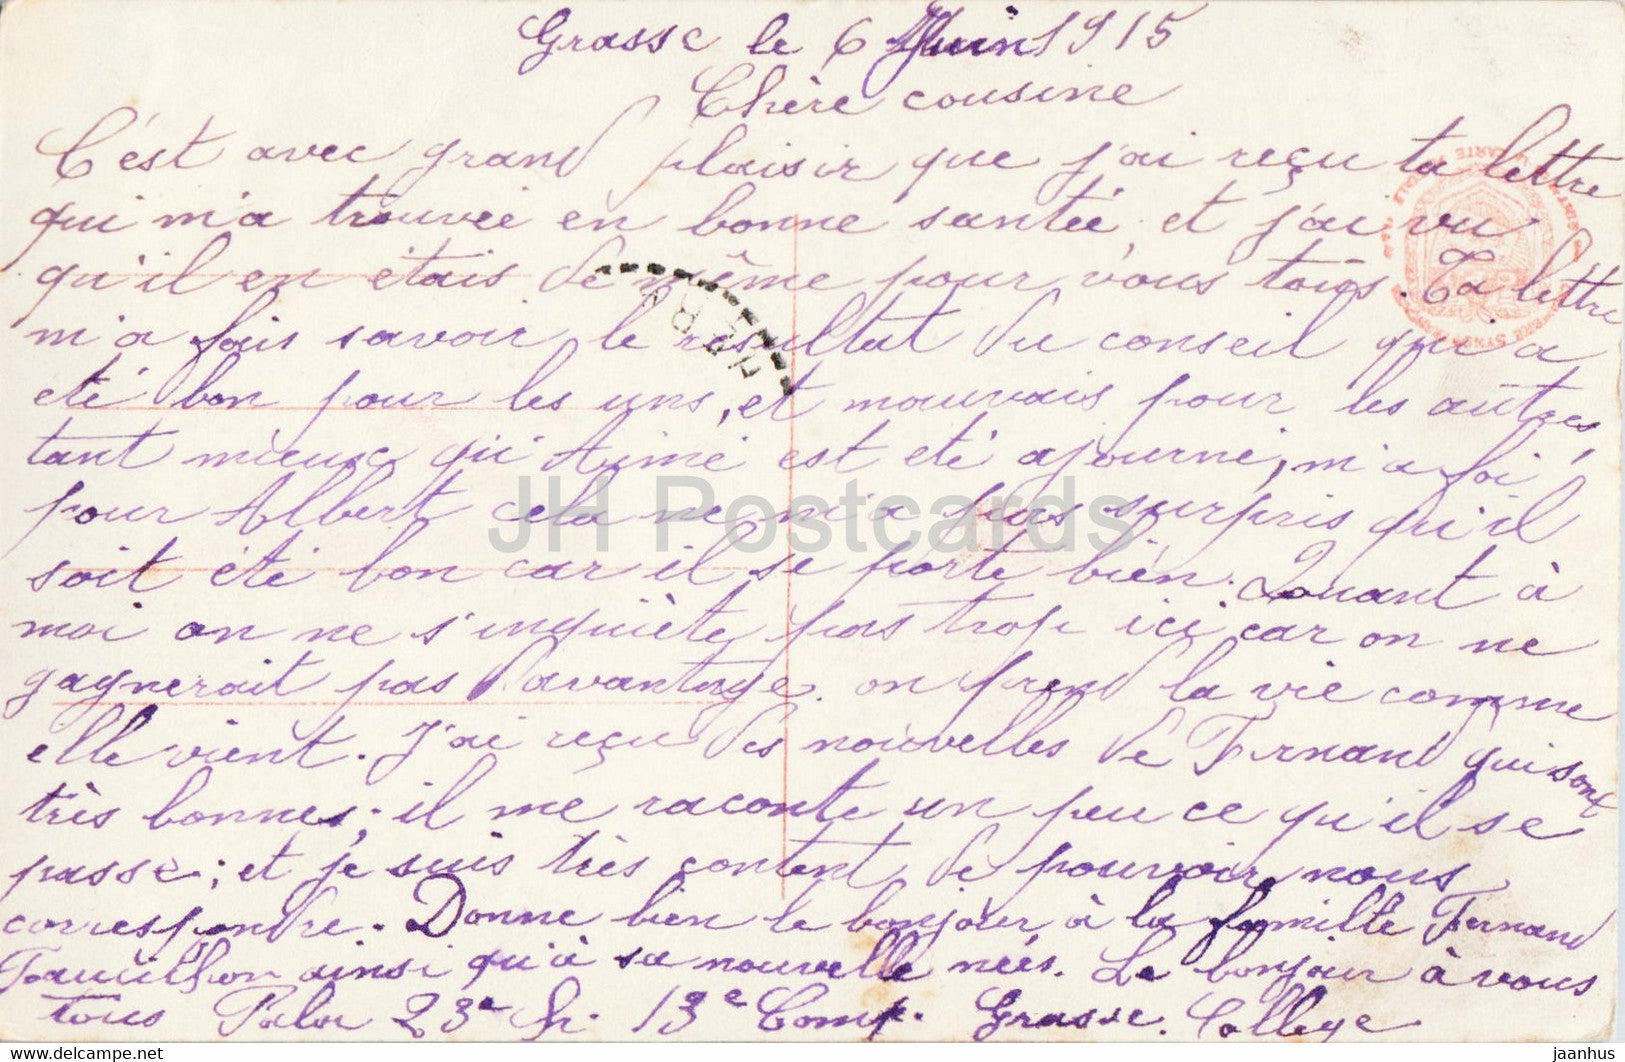 Grasse le 6 Juin 1915
Chère cousine
C'est avec grand plaisir que j'ai reçu ta lettre
qui m'a trouvée en bonne santée, et j'ai vu
qu'il en étais de même pour vous tous. Ta lettre
m'a fais savoir le résultat du conseil qui a
eté bon pour les uns, et mouvais pour les autres
tant mieux qu'Aimé est eté ajourné, m'a foi
pour Albert cela ne m'a pas surpris qu'il
soit été bon car il se porte bien. Quant à
moi on ne s'inquiète pas trop ici car on ne
gagnerait pas davantage. on prend la vie comme
elle vient. J'ai reçu des nouvelles de Fernand qui sont
très bonnes; il me raconte un peu ce qu'il se
passe; et je suis très content de pouvoir nous
correspondre. Donne bien le bonjour à la famille Fernand
ainsi qu'à sa nouvelle nées. Le bonjour à vous
tous 23e 13e Comp. Grasse. College
JH Postcards
jaanhus @ delcampe.net